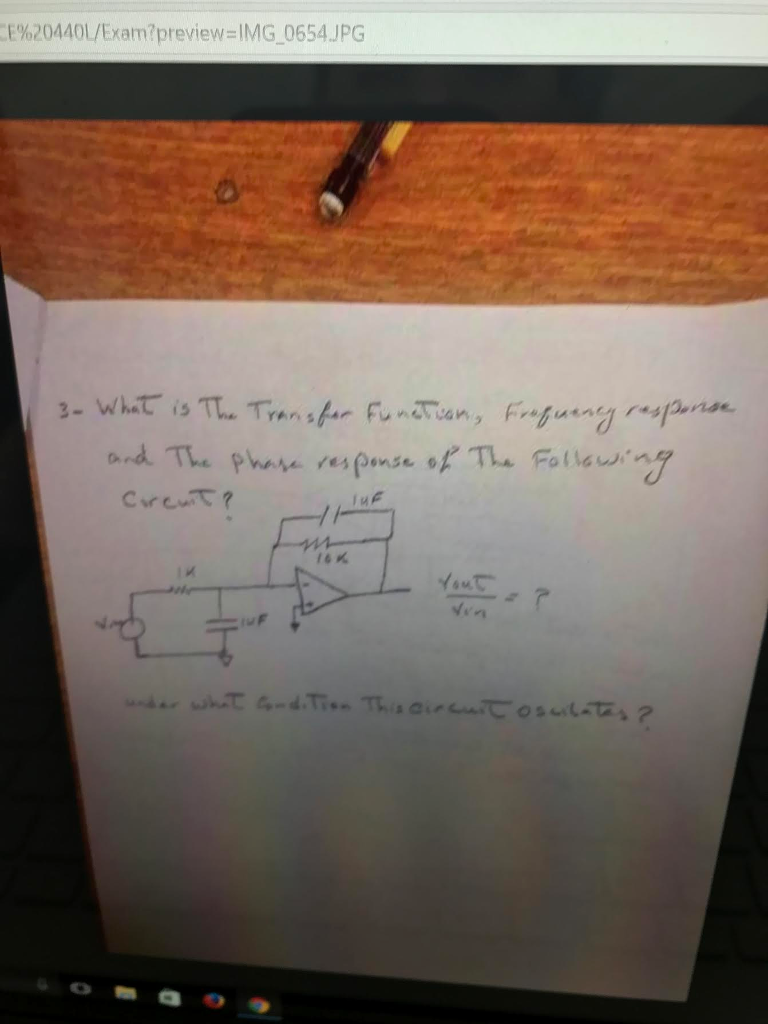 CE%20440L/Exam?preview=IMG_0654.JPG
3- What is The Transfer Function, Frequency response
and The phase response of The Following
Circuit?
1uF
10K
1K
Vin
1uF
-
+
Vout
Vin
= ?
under what Condition This circuit oscilates?